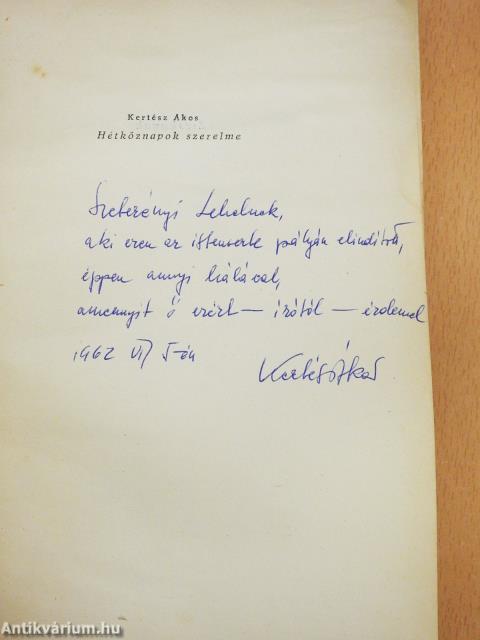 Kertész Ákos
Hétköznapok szerelme
Szeberényi Lehelnek,
aki ezen az istenverte pályán elindított,
éppen annyi hálával,
amennyit ő ezért — írótól — érdemel
1962 VI/5-én
Kertész Ákos
Antikvárium.hu